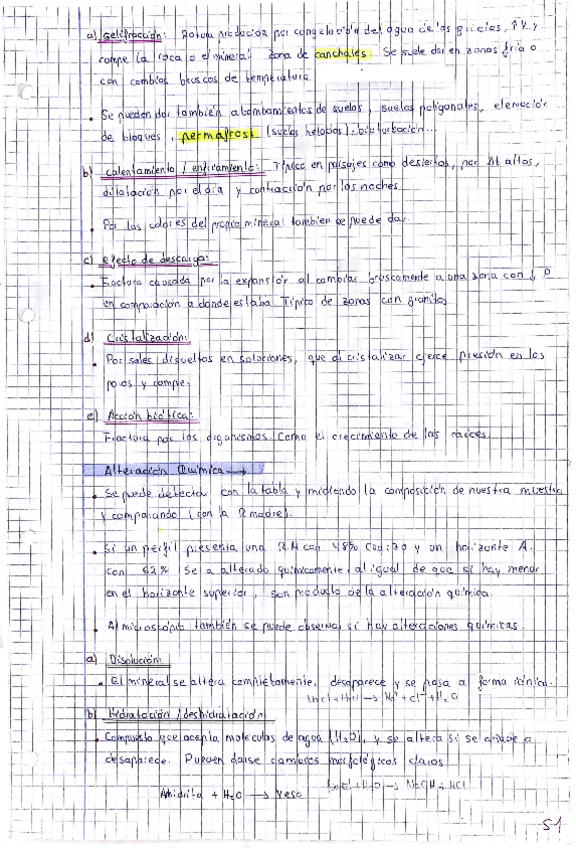 a) Gelifracción: Rotura producida por congelación del agua de las grietas, ↑V y
rompe la roca o el mineral zona de canchales. Se suele dar en zonas fría o
con cambios bruscos de temperatura
• Se pueden dar también abombamientos de suelos, suelos poligonales, elevación
de bloques, permafrost (suelos helados), bioturbación...
b) Calentamiento / enfriamiento: Típico en paisajes como desiertos, por Δt altos,
dilatación por el día y contracción por las noches
• Por los colores del propio mineral también se puede dar.
c) Efecto de descarga:
• Fractura causada por la expansión al cambiar bruscamente a una zona con ↓ P
en comparación a donde estaba. Típico de zonas con granitos
d) Cristalización:
• Por sales disueltas en soluciones, que al cristalizar ejerce presión en los
poros y rompe.
e) Acción biótica:
Fractura por los organismos. Como el crecimiento de las raíces.
Alteración Química →
• Se puede detectar con la tabla y midiendo la composición de nuestra muestra
y comparando (con la R madre).
• Si un perfil presenta una R.M con 48% y un horizonte A.
con 62% Se a alterado químicamente, al igual de que si hay menor
en el horizonte superior, son producto de la alteración química.
• Al microscopio también se puede observar si hay alteraciones químicas.
a) Disolución:
• El mineral se altera completamente, desaparece y se pasa a forma iónica.
→ Na⁺ + Cl⁻ + H₂O
b) Hidratación / deshidratación
• Compuesto que acepta moléculas de agua (H₂O), y se altera si se añade o
desaparece. Pueden darse cambios morfológicos claros
+ H₂O → NaOH + HCl
Anhidrita + H₂O → Yeso
S-1